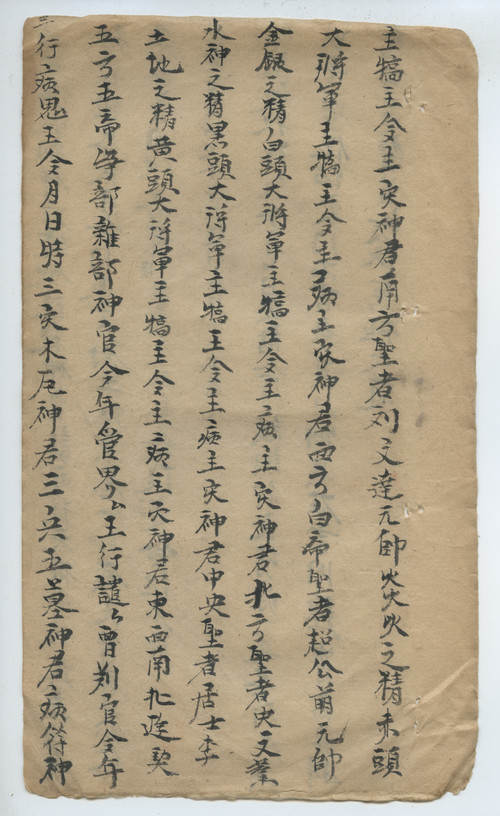 主犒主令主灾神君南方聖者刘文達元帥炎火之精赤頭
大將軍主犒主令主病主灾神君西方白帝聖者趙公元帥
金銀之精白頭大將軍主犒主令主病主灾神君北方聖者史文業
水神之精黑頭大將軍主犒主令主病主灾神君中央聖者居士李
土地之精黄頭大將軍主犒主令主病主灾神君東西南北遊奕
五方五帝净部雜部神官今年管界公王行譴公曹判官今年
行病鬼王令月日時三灾木厄神君三兵五墓神君病符神